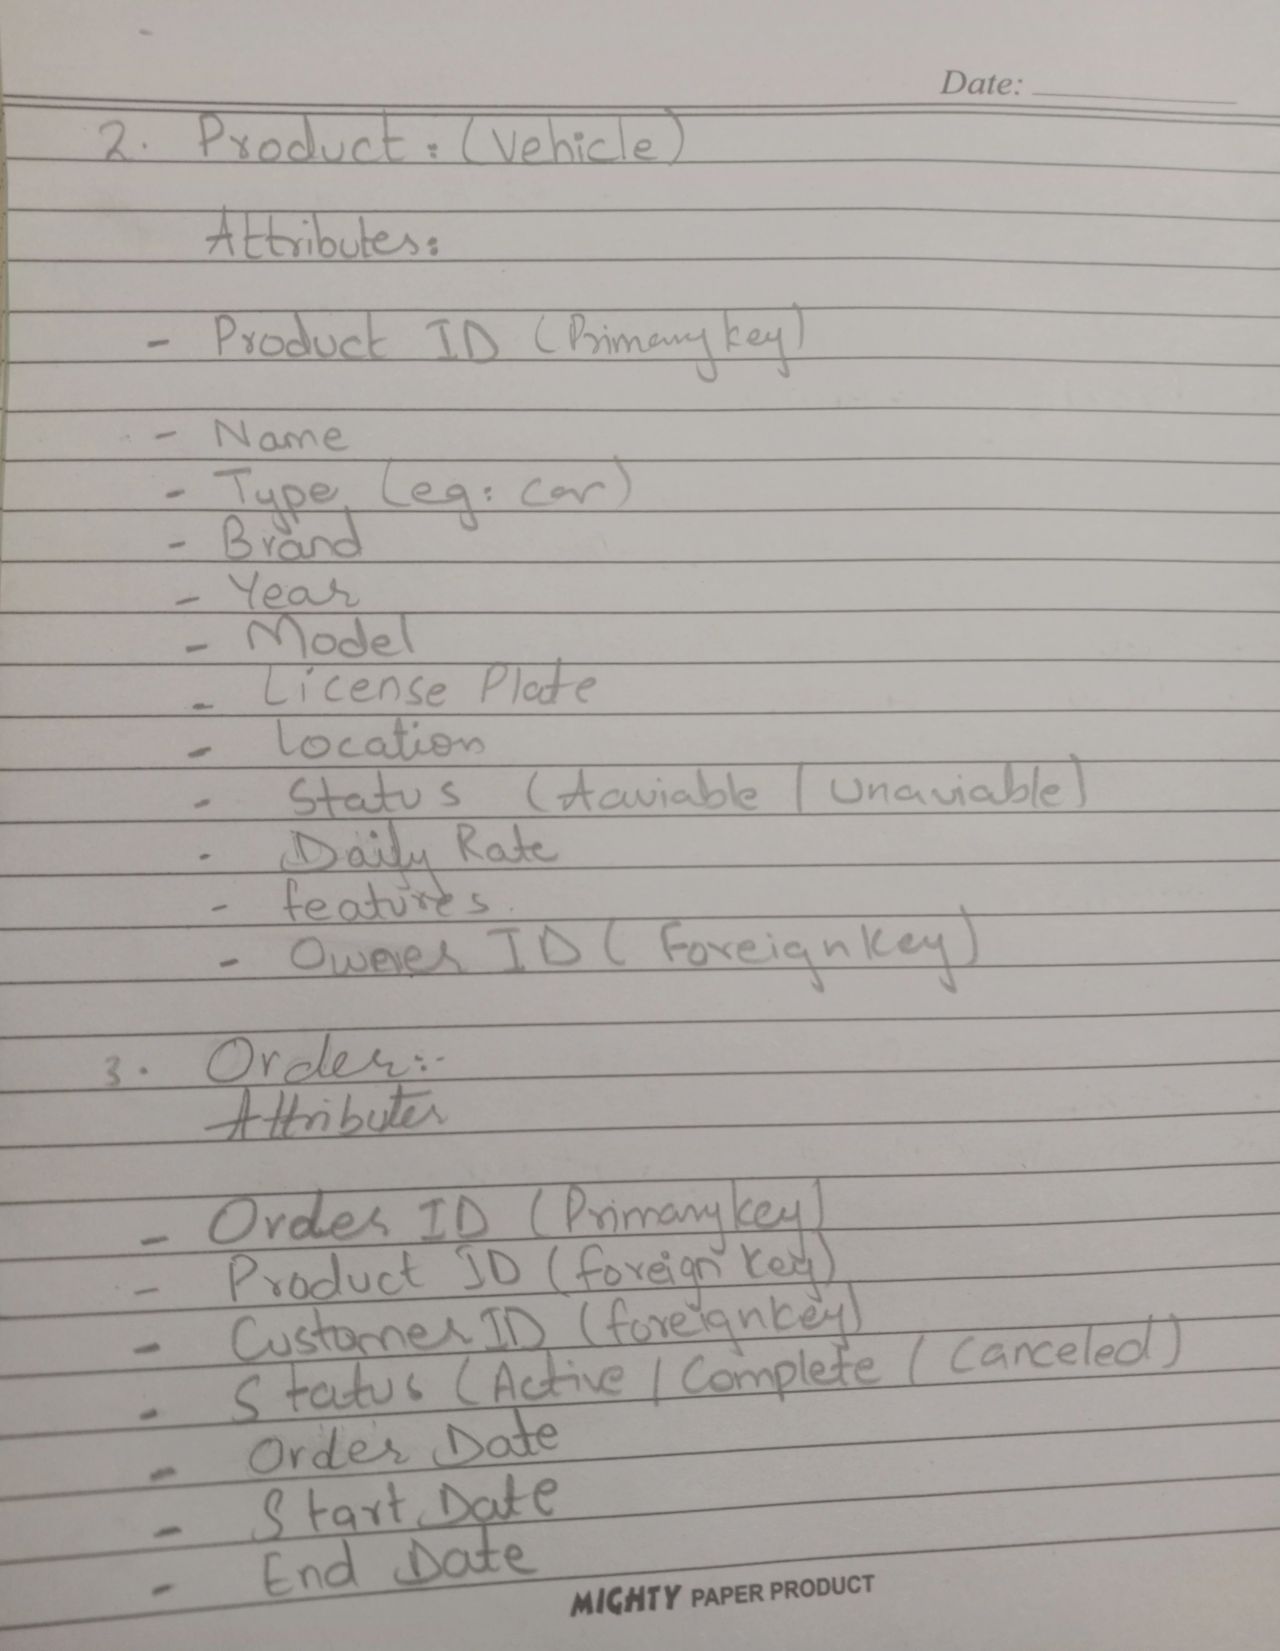 Date:
2. Product: (Vehicle)
Attributes:
- Product ID (Primary key)
- Name
- Type (eg: car)
- Brand
- Year
- Model
- License Plate
- Location
- Status (Aaviable / Unaviable)
- Daily Rate
- features.
- Owener ID ( Foreign key)
3. Order:-
Attributes
- Order ID (Primary key)
- Product ID (foreign key)
- Customer ID (foreign key)
- Status (Active / Complete / Canceled)
- Order Date
- Start Date
- End Date
MIGHTY PAPER PRODUCT